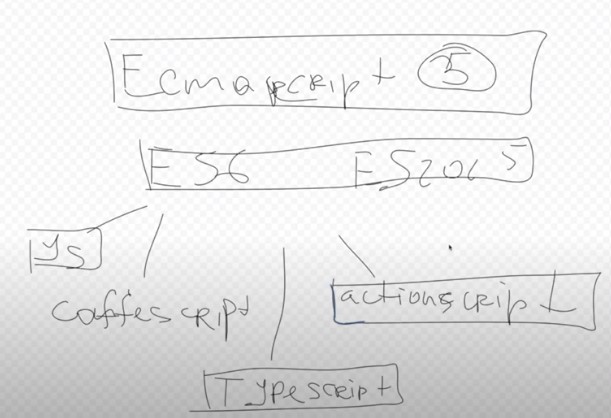 Ecmascript 5
ES6 ES2015
JS
caffescript
actionscript
Typescript